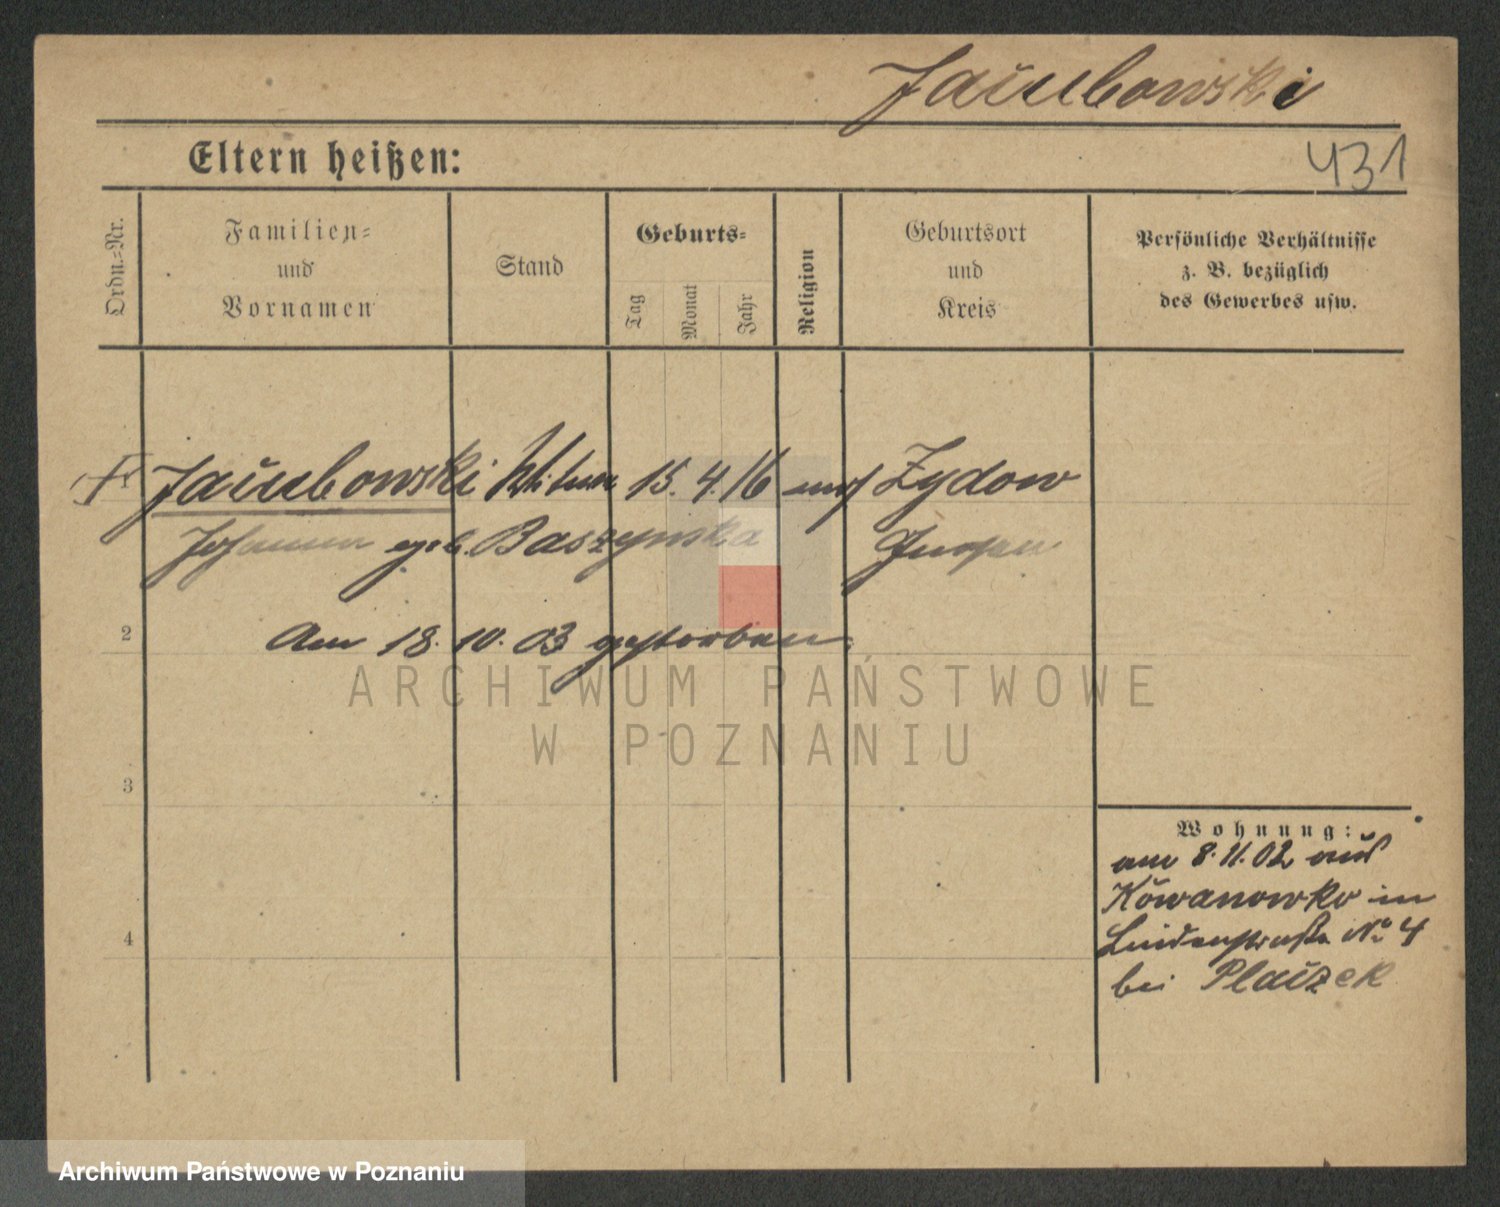 Jakubowski
Eltern heißen:
431
Ordn.-Nr.
Familien-
und
Vornamen
Stand
Geburts-
Tag
Monat
Jahr
Religion
Geburtsort
und
Kreis
Persönliche Verhältnisse
z. B. bezüglich
des Gewerbes usw.
Jakubowski 15. 4. 16 Zydow
geb. Baszynska Gnesen
2
Am 18. 10. 03 gestorben.
3
4
Wohnung:
am 8. 11. 02 aus
Kowanowko in
Lindenstraße No 4
bei
ARCHIWUM PAŃSTWOWE
W POZNANIU
Archiwum Państwowe w Poznaniu